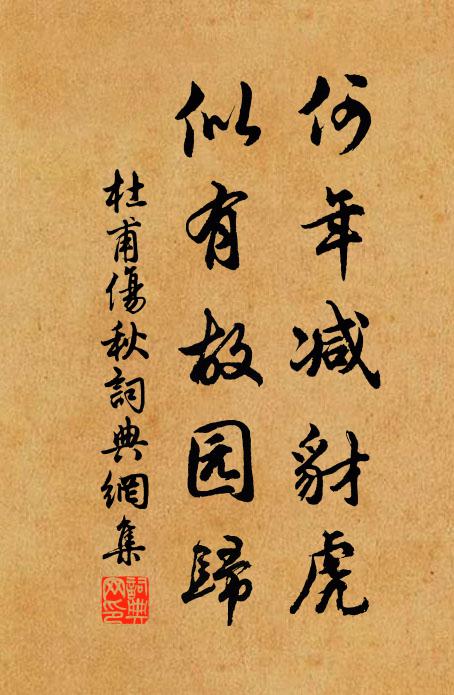 何年减豺虎
似有故园歸
杜甫傷秋詞典網集
詞典網印